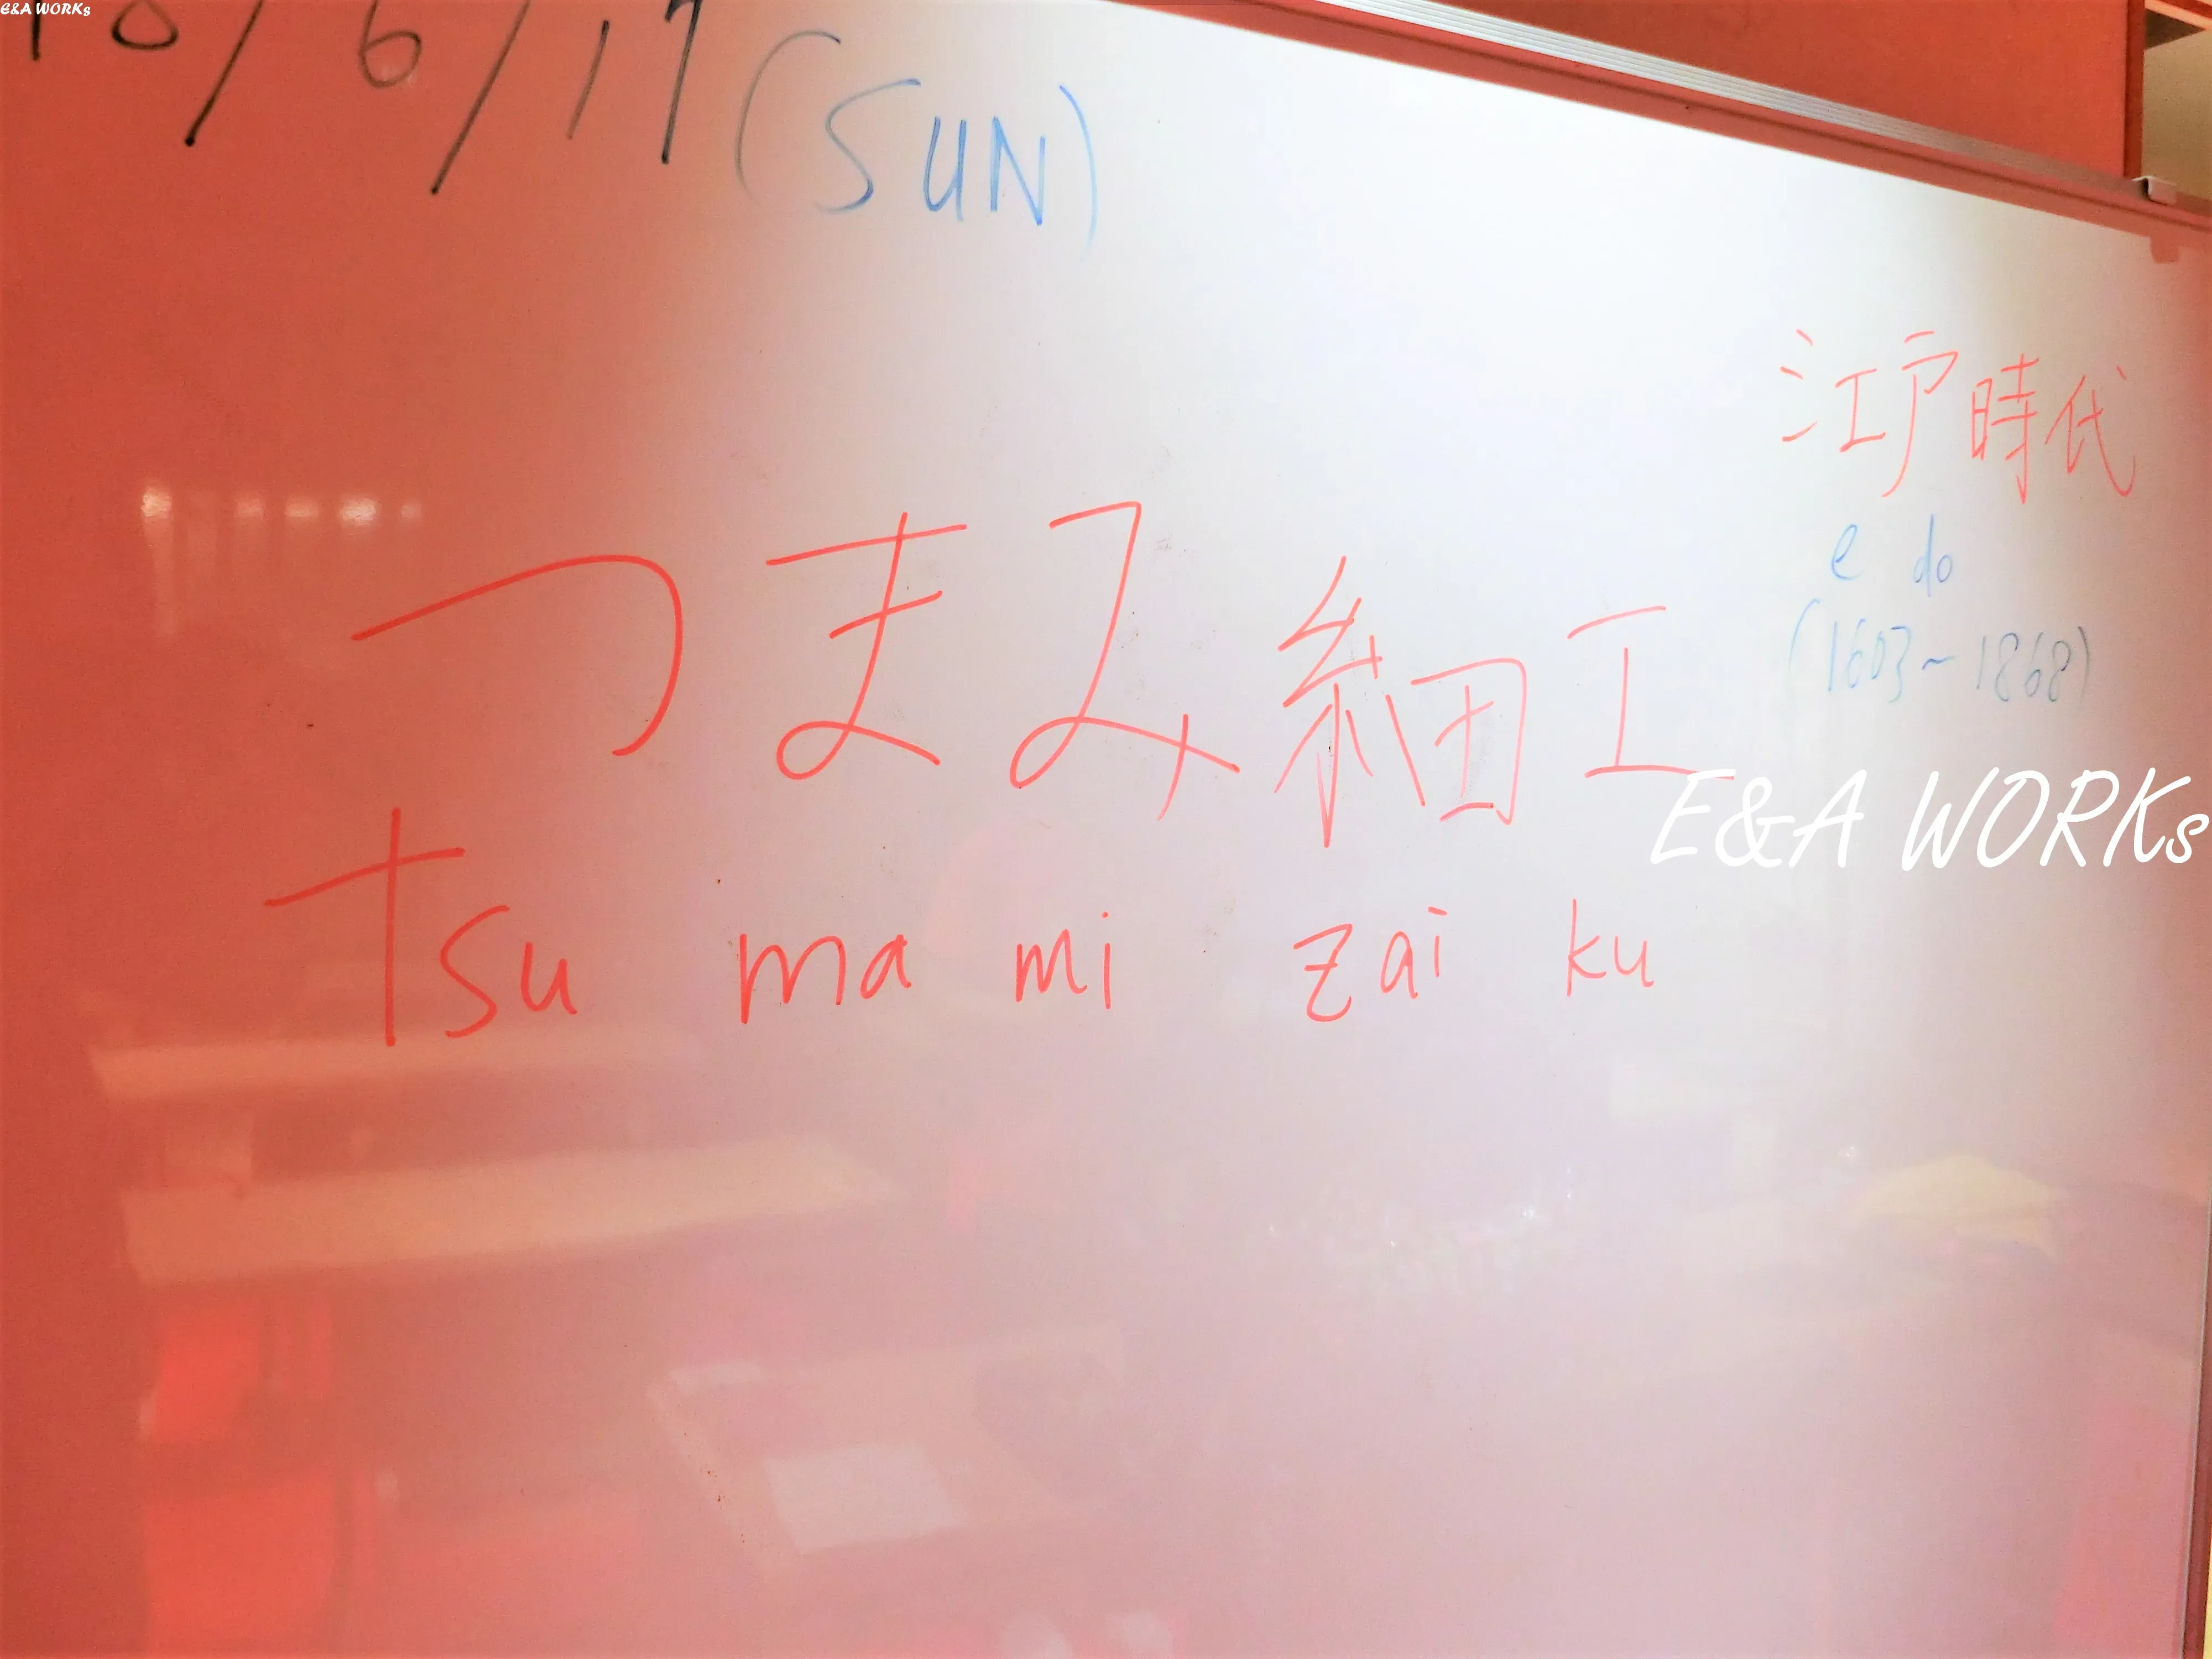 E&A WORKs
18/6/17 (SUN)
江戸時代
e do
(1603~1868)
つまみ細工
E&A WORKs
tsu ma mi zai ku